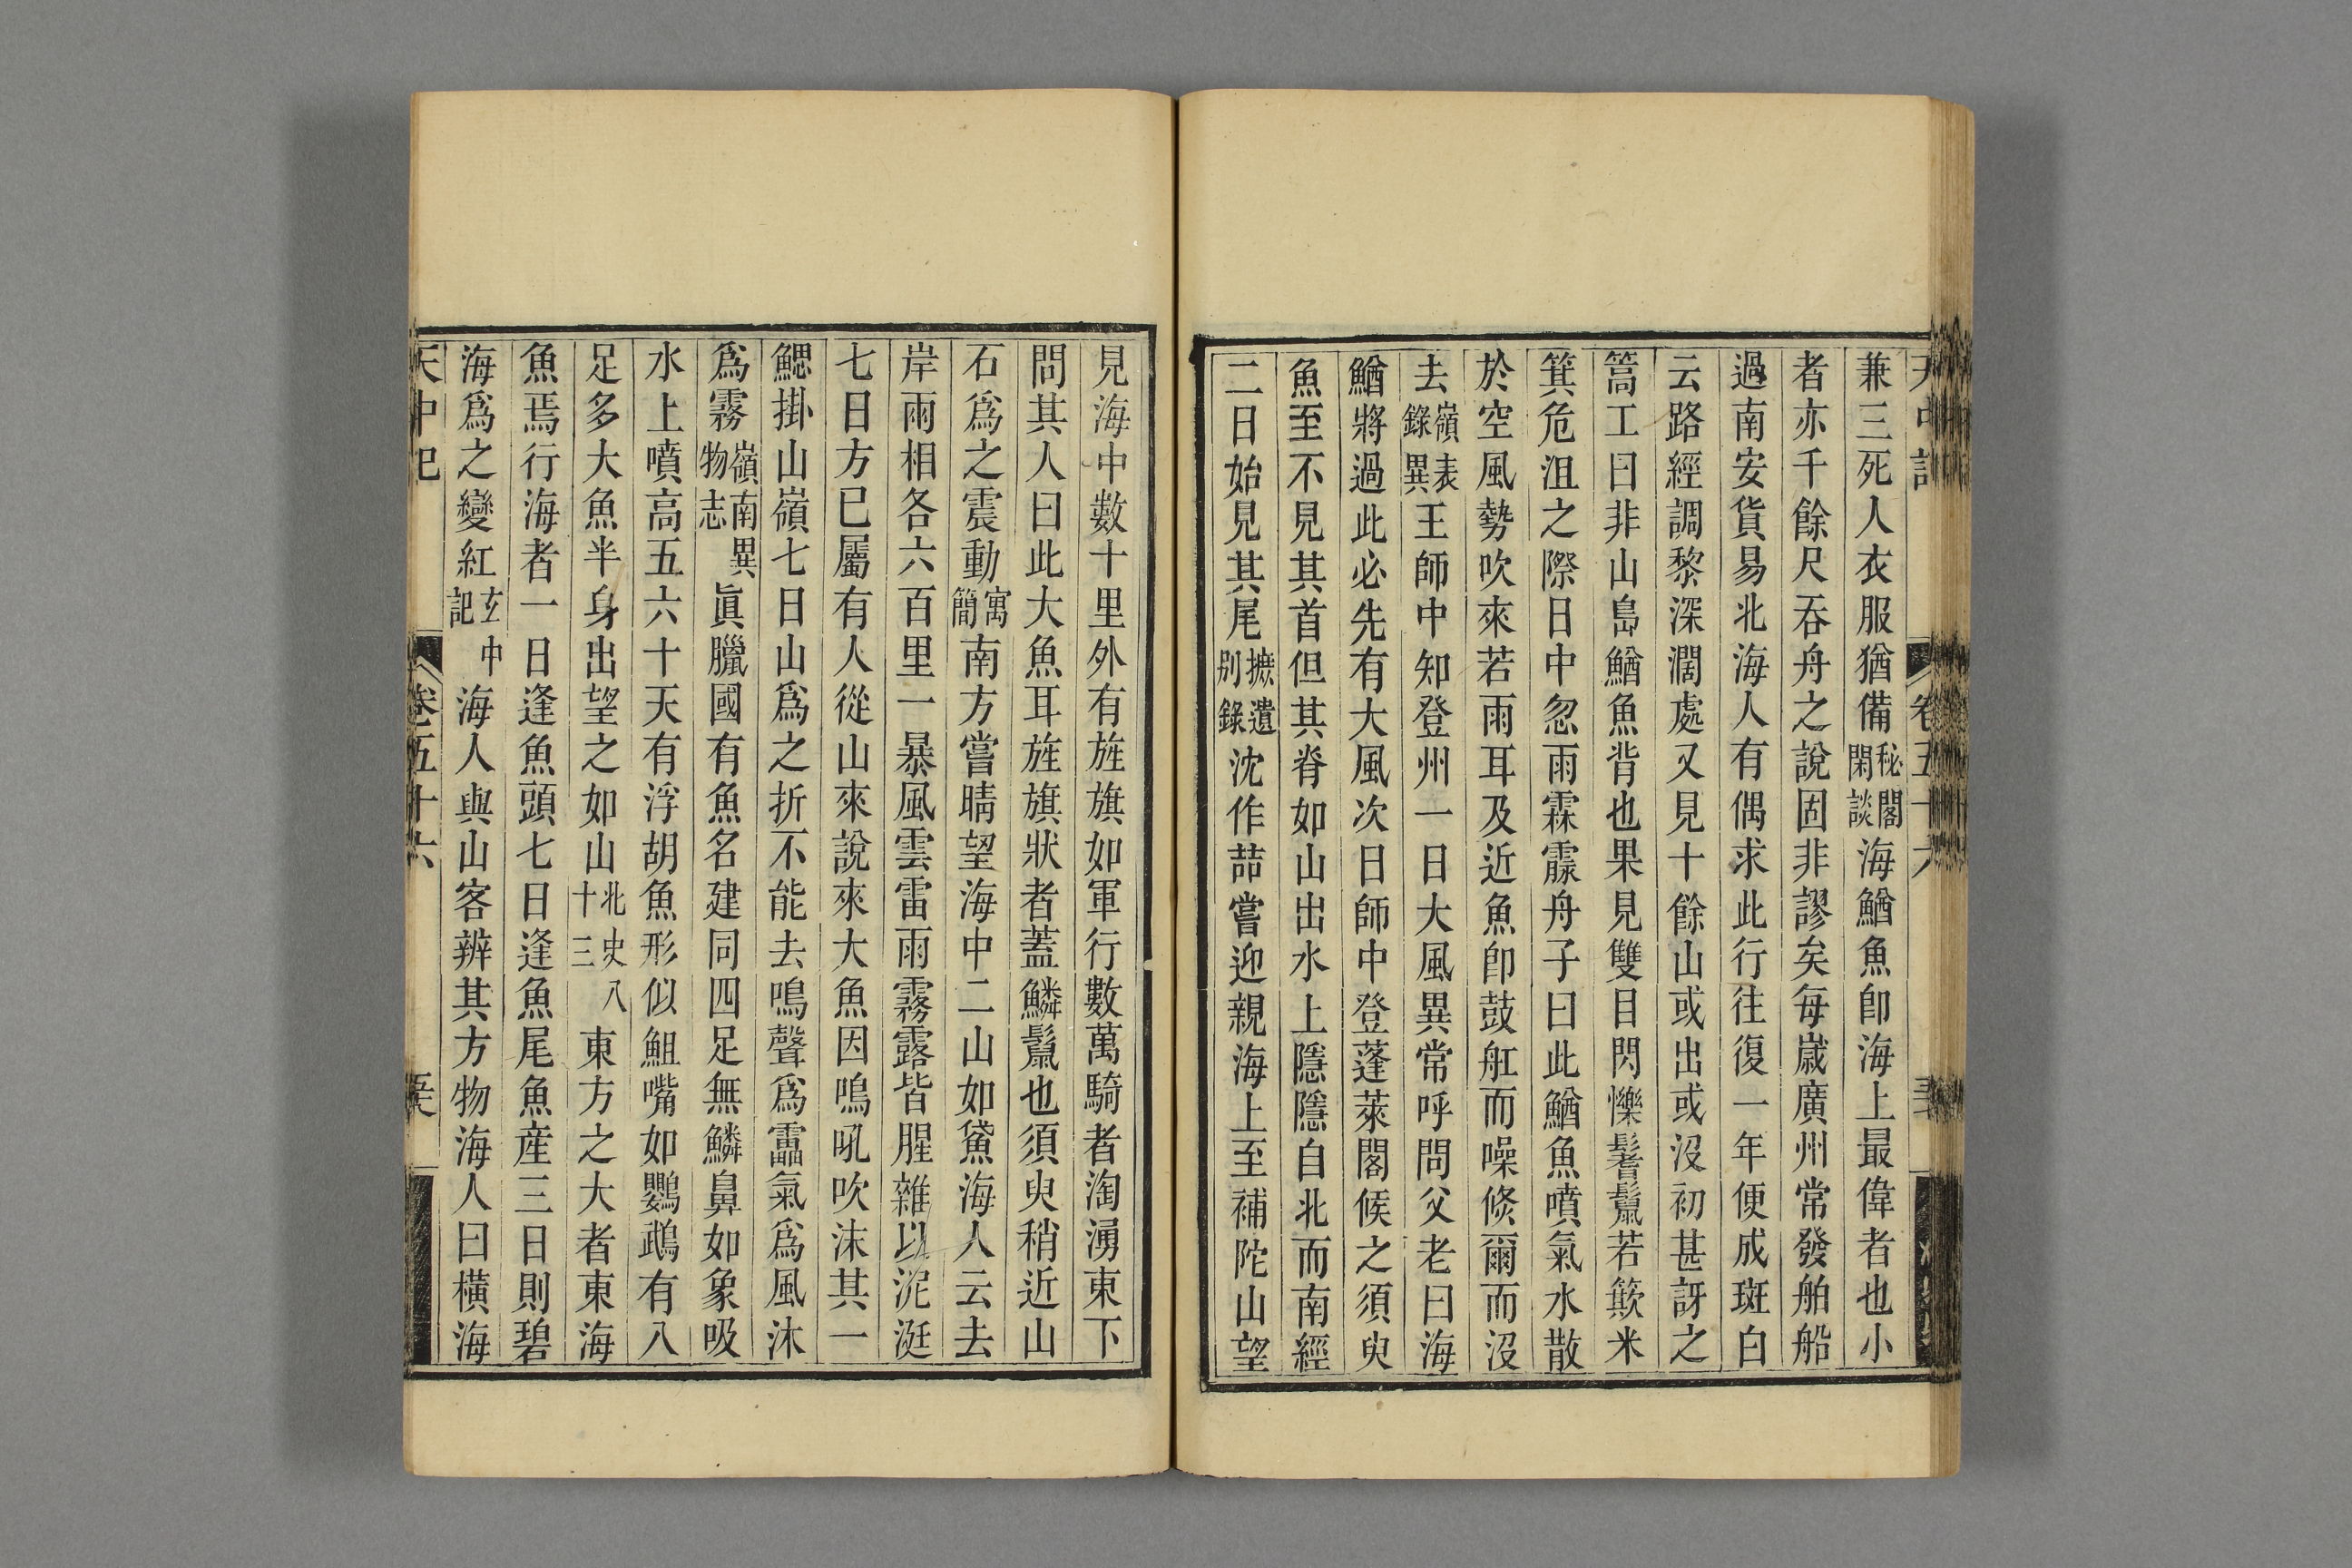 兼三死人衣服猶備秘閣閑談海鰌魚卽海上最偉者也小
者亦千餘尺吞舟之說固非謬矣每嵗廣州常發舶船
過南安貨易北海人有偶求此行往復一年便成斑白
云路經調黎深濶處又見十餘山或出或沒初甚訝之
篙工曰非山島鰌魚背也果見雙目閃爍鬐鬣若簸米
箕危沮之際日中忽雨霡霂舟子曰此鰌魚噴氣水散
於空風勢吹來若雨耳及近魚卽鼓舡而噪倐爾而沒
去嶺表錄異王師中知登州一日大風異常呼問父老曰海
鰌將過此必先有大風次日師中登蓬萊閣候之須臾
魚至不見其首但其脊如山出水上隱隱自北而南經
二日始見其尾摭遺別錄沈作喆嘗迎親海上至補陀山望
見海中數十里外有旌旗如軍行數萬騎者淘湧東下
問其人曰此大魚耳旌旗狀者蓋鱗鬣也須臾稍近山
石爲之震動寓簡南方嘗晴望海中二山如黛海人云去
岸兩相各六百里一暴風雲雷雨霧露皆腥雜以泥涎
七日方已屬有人從山來說來大魚因鳴吼吹沫其一
鰓掛山嶺七日山爲之折不能去鳴聲爲靁氣爲風沐
爲霧嶺南異物志眞臘國有魚名建同四足無鱗鼻如象吸
水上噴高五六十天有浮胡魚形似䱉嘴如鸚鵡有八
足多大魚半身出望之如山北史八十三東方之大者東海
魚焉行海者一日逢魚頭七日逢魚尾魚産三日則碧
海爲之變紅玄中記海人與山客辨其方物海人曰橫海
天中記 卷五十六